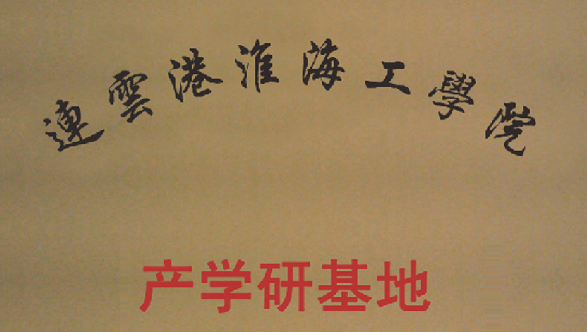 連雲港淮海工學院
产学研基地